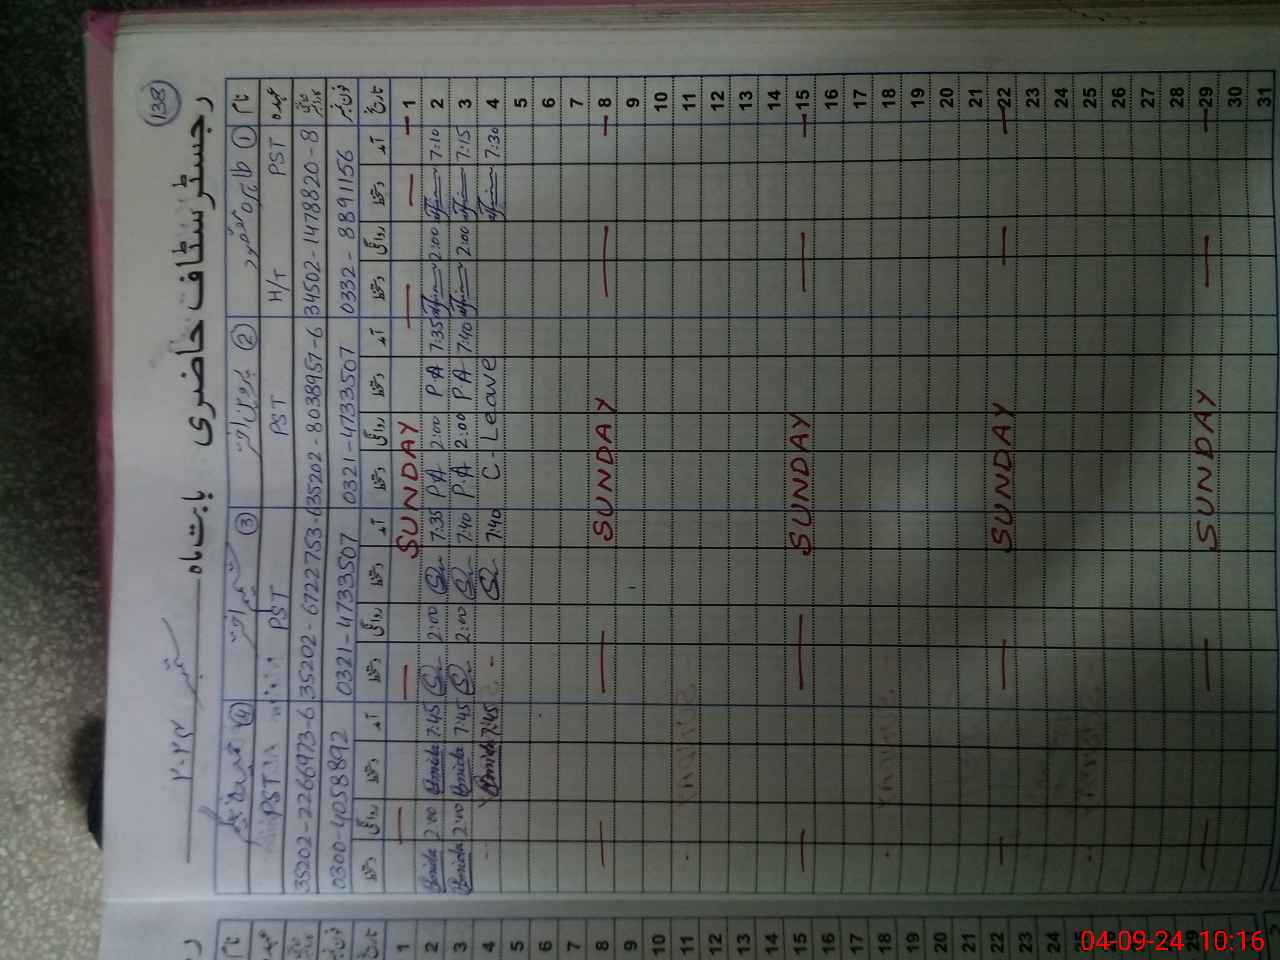 138
رجسٹر سٹاف حاضری بابت ماہ ستمبر ۲۰۲۴
نام ① طاہرہ مقصود ② پروین اختر ③ شمیم اختر ④
عہدہ PST H/T PST PST PST
34502-1478820-8 35202-8038957-6 35202-6722753-6 35202-2266973-6
فون نمبر 0332-8891156 0321-4733507 0321-4733507 0300-4058892
تاریخ آمد دستخط روانگی دستخط آمد دستخط روانگی دستخط آمد دستخط روانگی دستخط آمد دستخط روانگی دستخط
1 SUNDAY
2 7:10 2:00 7:35 P.A 2:00 P.A 7:35 2:00 7:45 2:00
3 7:15 2:00 7:40 P.A 2:00 P.A 7:40 2:00 7:45 2:00
4 7:30 C-Leave 7:40 7:45
5
6
7
8 SUNDAY
9
10
11
12
13
14
15 SUNDAY
16
17
18
19
20
21
22 SUNDAY
23
24
25
26
27
28
29 SUNDAY
30
31
نام
عہدہ
فون نمبر
تاریخ
1
2
3
4
5
6
7
8
9
10
11
12
13
14
15
16
17
18
19
20
21
22
23
24
04-09-24 10:16